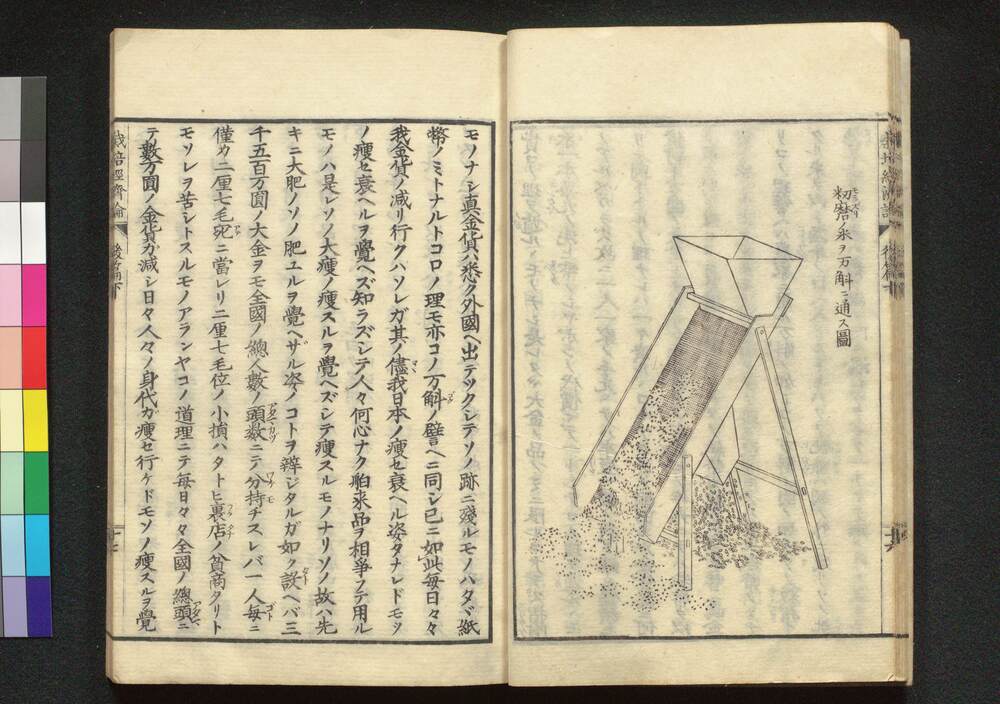 籾磨ノ米ヲ万斛ニ通ス圖
モノナシ真金貨ハ悉ク外國ヘ出テツクシテソノ跡ニ殘ルモノハタヾ紙
幣ノミトナルトコロノ理モ亦コノ万斛ノ譬ヘニ同シ已ニ如此毎日々々
我金貨ノ減リ行クハソレガ其ノ儘我日本ノ瘦セ衰ヘル姿タナレドモソ
ノ瘦セ衰ヘルヲ覺ヘズ知ラズシテ人々何心ナク舶来品ヲ相爭フテ用ル
モノハ是レソノ大瘦ノ瘦スルヲ覺ヘズシテ瘦スルモノナリソノ故ハ先
キニ大肥ノソノ肥ユルヲ覺ヘザル姿ノコトヲ辨ジタルガ如ク設ヘバ三
千五百万圓ノ大金ヲモ全國ノ總人數ノ頭數ニテ分持チスレバ一人毎ニ
僅カ二厘七毛宛ニ當レリ二厘七毛位ノ小損ハタトヒ裏店ノ貧商タリト
モソレヲ苦シトスルモノアランヤコノ道理ニテ毎日々々全國ノ總頭ニ
テ數万圓ノ金貨ガ減シ日々人々ノ身代ガ瘦セ行ケドモソノ瘦スルヲ覺
栽培經濟論
後篇下
十七